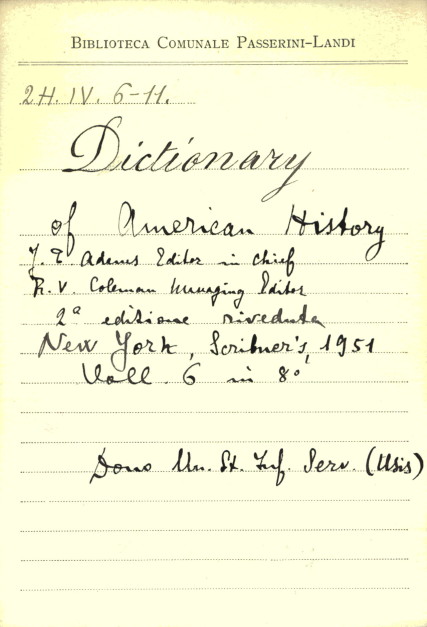 Biblioteca Comunale Passerini-Landi
2H. IV. 6-11.
Dictionary
of American History
J. T. Adams Editor in chief
R. V. Coleman Managing Editor
2ª editione riveduta
New York, Scribner's, 1951
Voll. 6 in 8°
Dono Un. St. Inf. Serv. (Usis)